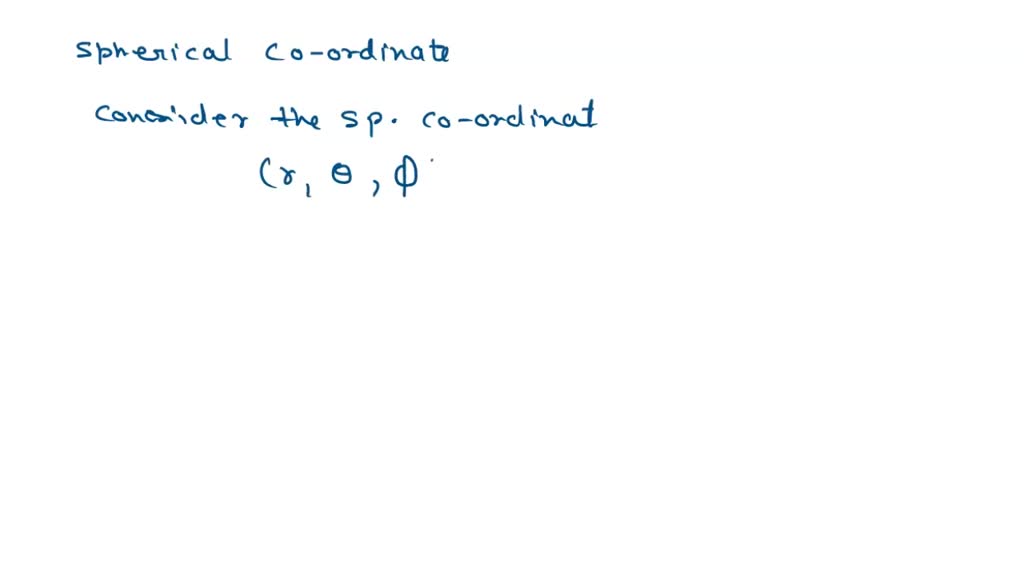 spherical co-ordinate
consider the sp. co-ordinat
(r, θ, ϕ